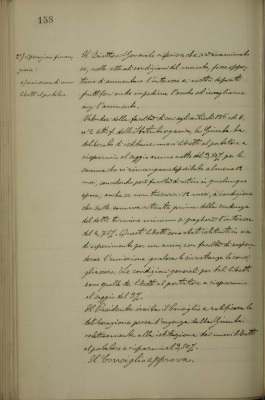 158
2°) Operazioni finan-
ziarie:
a) emissione di nuovi
libretti al portatore
Il Direttore Generale riferisce che si è esaminato
se, nelle attuali condizioni del mercato, fosse oppor-
tuno di aumentare l'interesse ai nostri depositi
fruttiferi onde impedirne l'esodo ed invogliarne
anzi l'aumento.
Valendosi della facoltà di cui agli articoli
lett. f. dello Statuto organico, la Giunta ha
deliberato di istituire nuovi libretti al portatore a
risparmio al saggio annuo netto del 3,50% per le
somme che vi rimangano depositate almeno
mesi, concedendo però facoltà di ritiro in qualunque
epoca, anche se non trascorsi mesi, a condizione
che sulle somme ritirate prima della scadenza
del detto termine minimo si paghi l'interesse
del 2,75%. Questi libretti sono stati istituiti in via
di esperimento per un anno, con facoltà di sospen-
derne l'emissione qualora le circostanze lo consi-
gliassero. Le condizioni generali per tali libretti
sono quelle dei libretti al portatore a risparmio
al saggio del 3%.
Il Presidente invita il Consiglio a ratificare la
deliberazione presa d'urgenza dalla Giunta
relativamente alla istituzione dei nuovi libretti
al portatore a risparmio al 3,50%.
Il Consiglio approva.